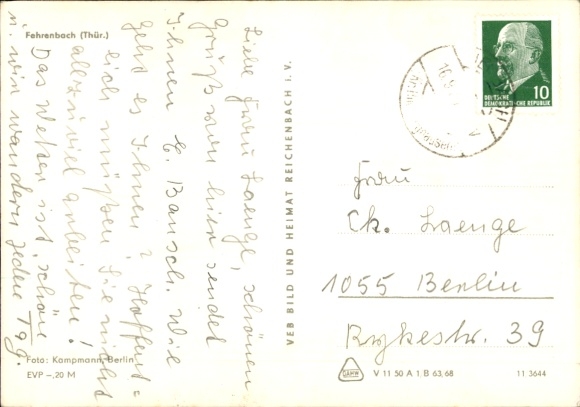 Fehrenbach (Thür.)
Liebe Frau Laenge, schönen
Gruß von hier sendet
Ihnen E. Bansch. Wie
geht es Ihnen? Hoffent=
lich müßen Sie nicht
allzuviel arbeiten!
Das Wetter ist schön
u. wir wandern jeden Tag.
Foto: Kampmann, Berlin
EVP –,20 M
VEB BILD UND HEIMAT REICHENBACH i. V.
10
DEUTSCHE
DEMOKRATISCHE REPUBLIK
Frau
Ch. Laenge
1055 Berlin
Rykestr. 39
DAMW
V 11 50 A 1 B 63/68
11 3644